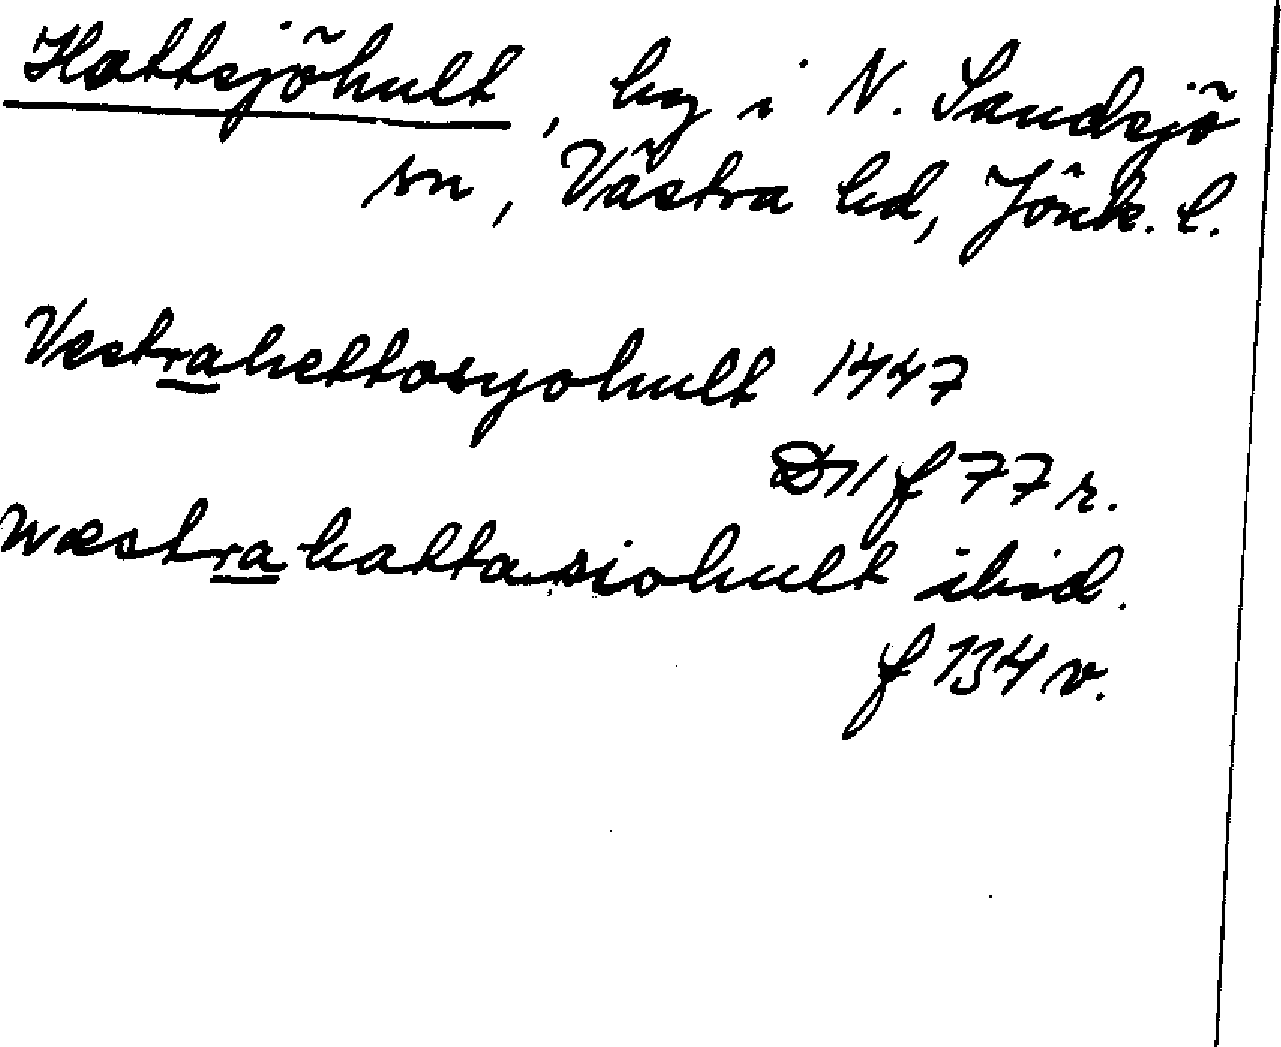 Hattsjöhult, by i N. Sandsjö
sn, Västra hd, Jönk. l.
Vestrahettosyohult 1447
D11 f 77 r.
Wæstrahattasiohult ibid.
f 134 v.